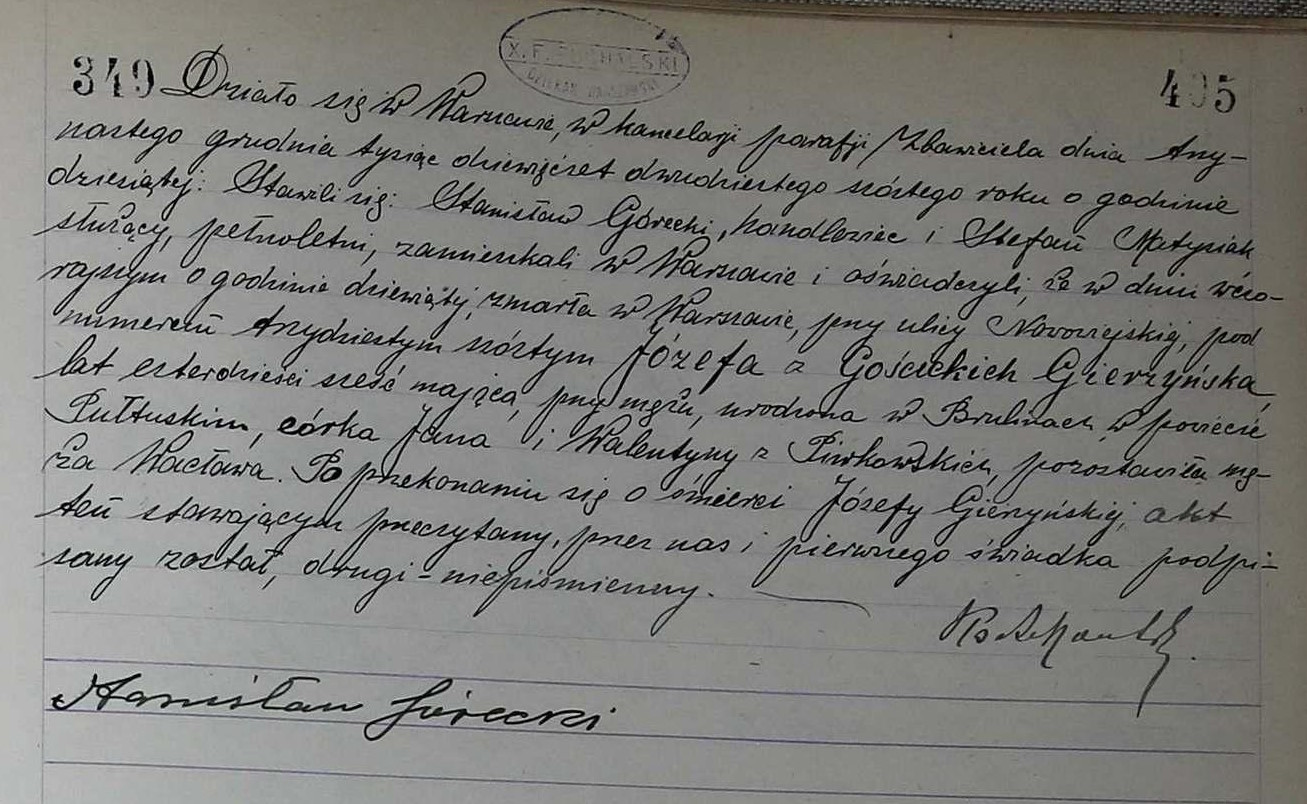 X. F.
DZIEKAN
349 Działo się w Warszawie, w kancelarji parafji Zbawiciela dnia trzy-
nastego grudnia tysiąc dziewięćset dwudziestego szóstego roku o godzinie
dziesiątej: Stawili się: Stanisław Górecki, handlowiec i Stefan Matysiak
służący, pełnoletni, zamieszkali w Warszawie i oświadczyli, że w dniu wczo-
rajszym o godzinie dziewiątej, zmarła w Warszawie, przy ulicy Nowowiejskiej, pod
numerem trzydziestym szóstym Józefa z Gościckich Gierzyńska,
lat czterdzieści sześć mająca, przy mężu, urodzona w Brulinach w powiecie
Pułtuskim, córka Jana i Walentyny z Piwkowskich, pozostawiła mę-
ża Wacława. Po przekonaniu się o śmierci Józefy Gierzyńskiej, akt
ten stawającym przeczytany, przez nas i pierwszego świadka podpi-
sany został, drugi - niepiśmienny.
Stanisław Górecki